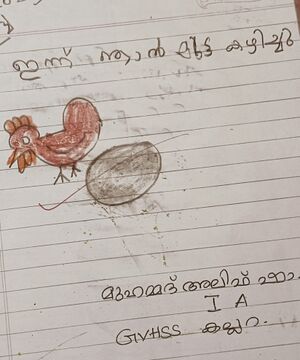 ഇന്ന് ഞാൻ മുട്ട കഴിച്ചു
മുഹമ്മദ് അലിഫ്
I A
GVHSS കല്ലറ.